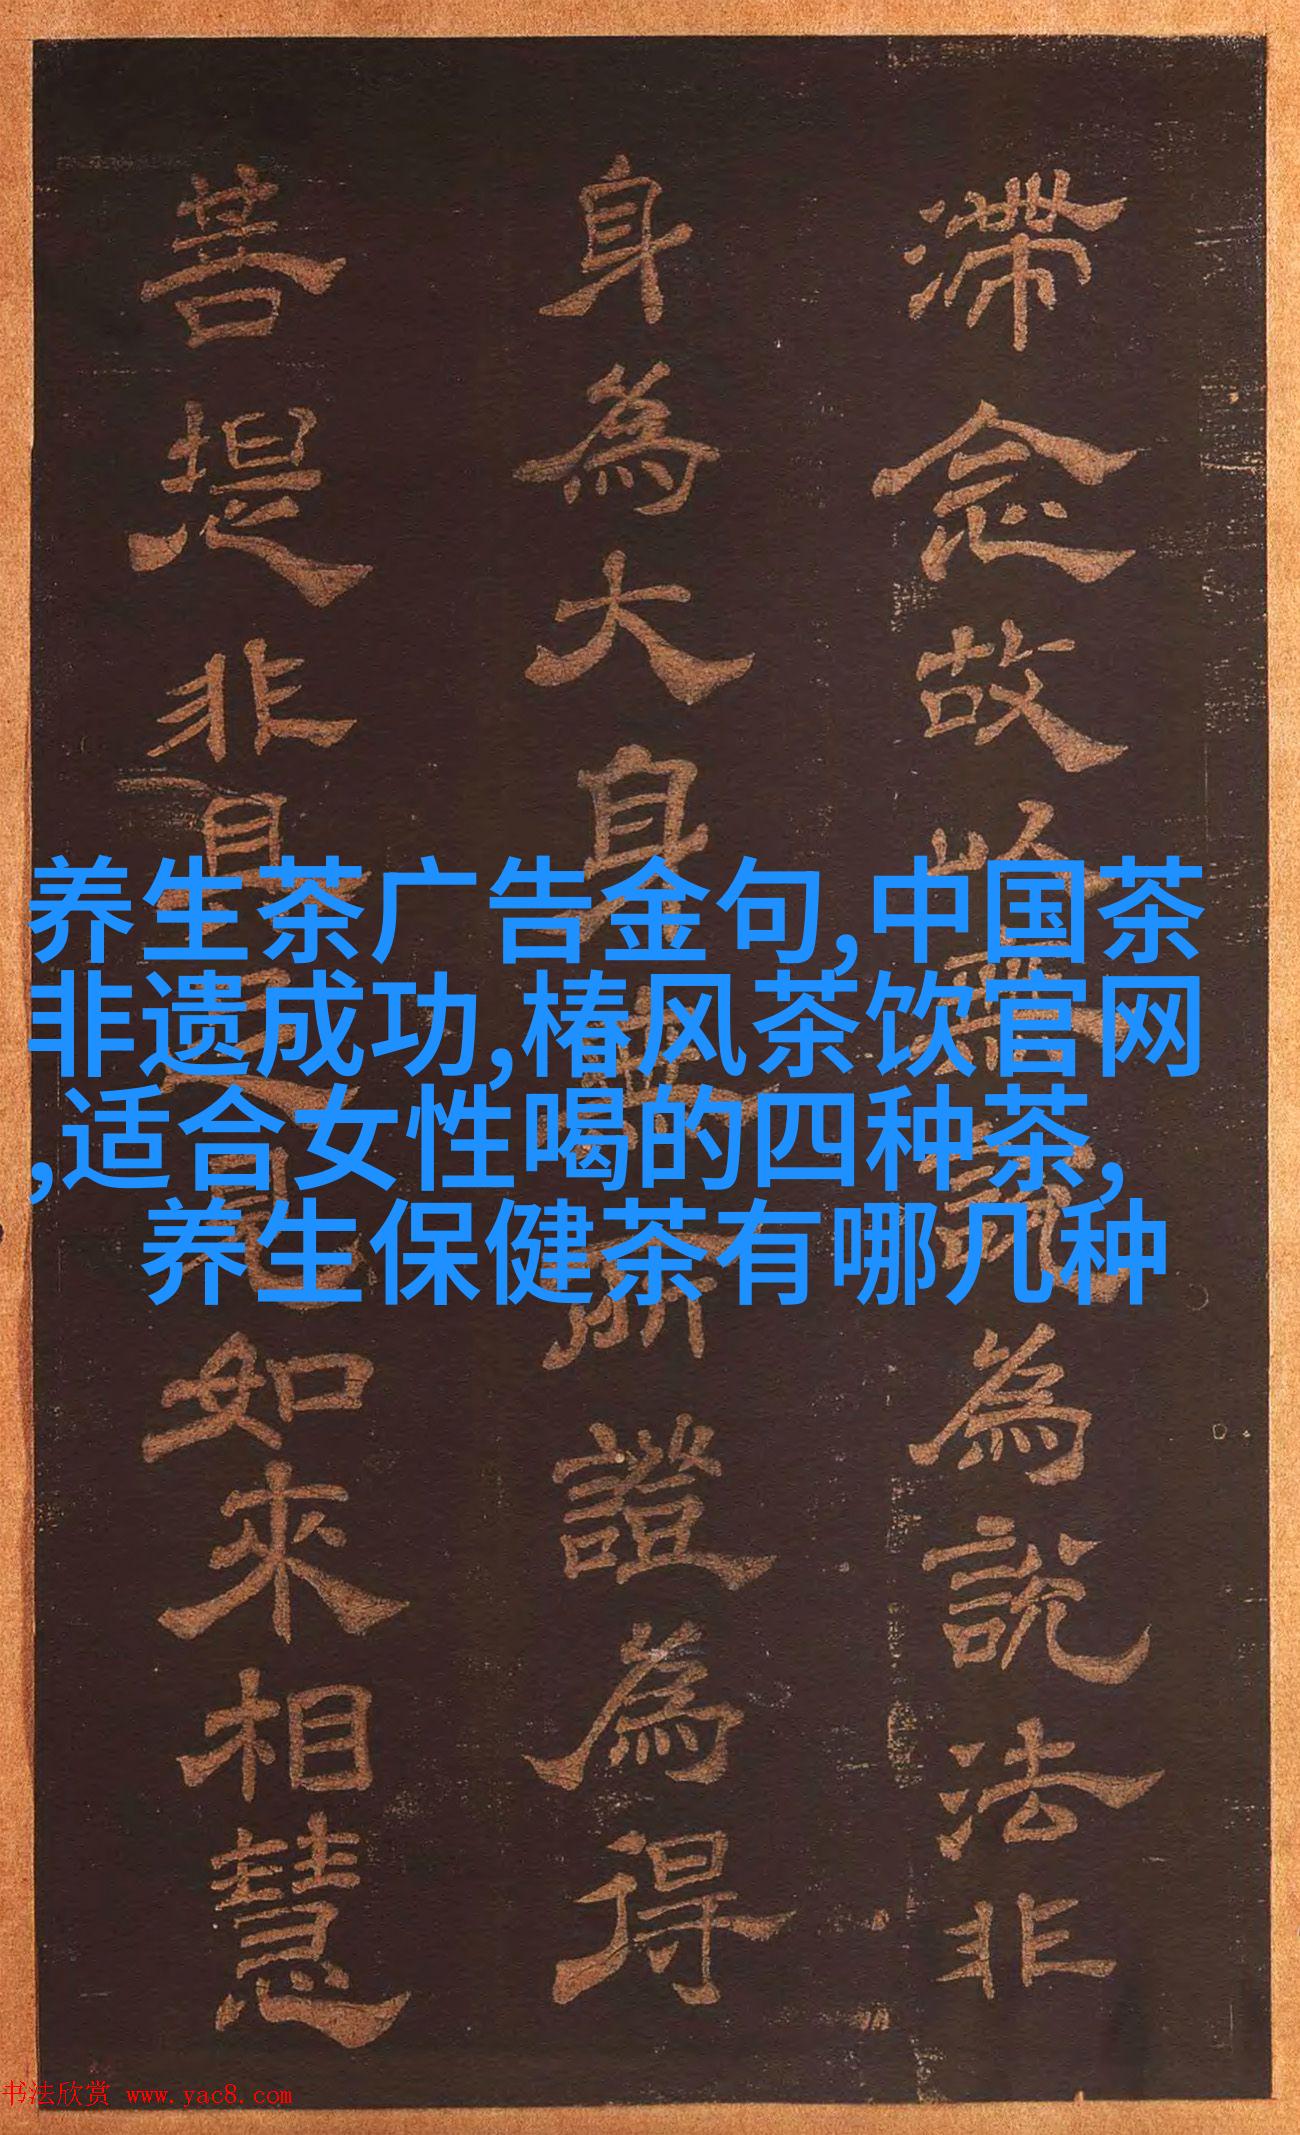 滞念故
為説法非
身為大身
證為得
菩提非
如來相慧
养生茶广告金句,中国茶
非遗成功,椿风茶饮官网
,适合女性喝的四种茶,
养生保健茶有哪几种
书法欣赏 www.yac8.com